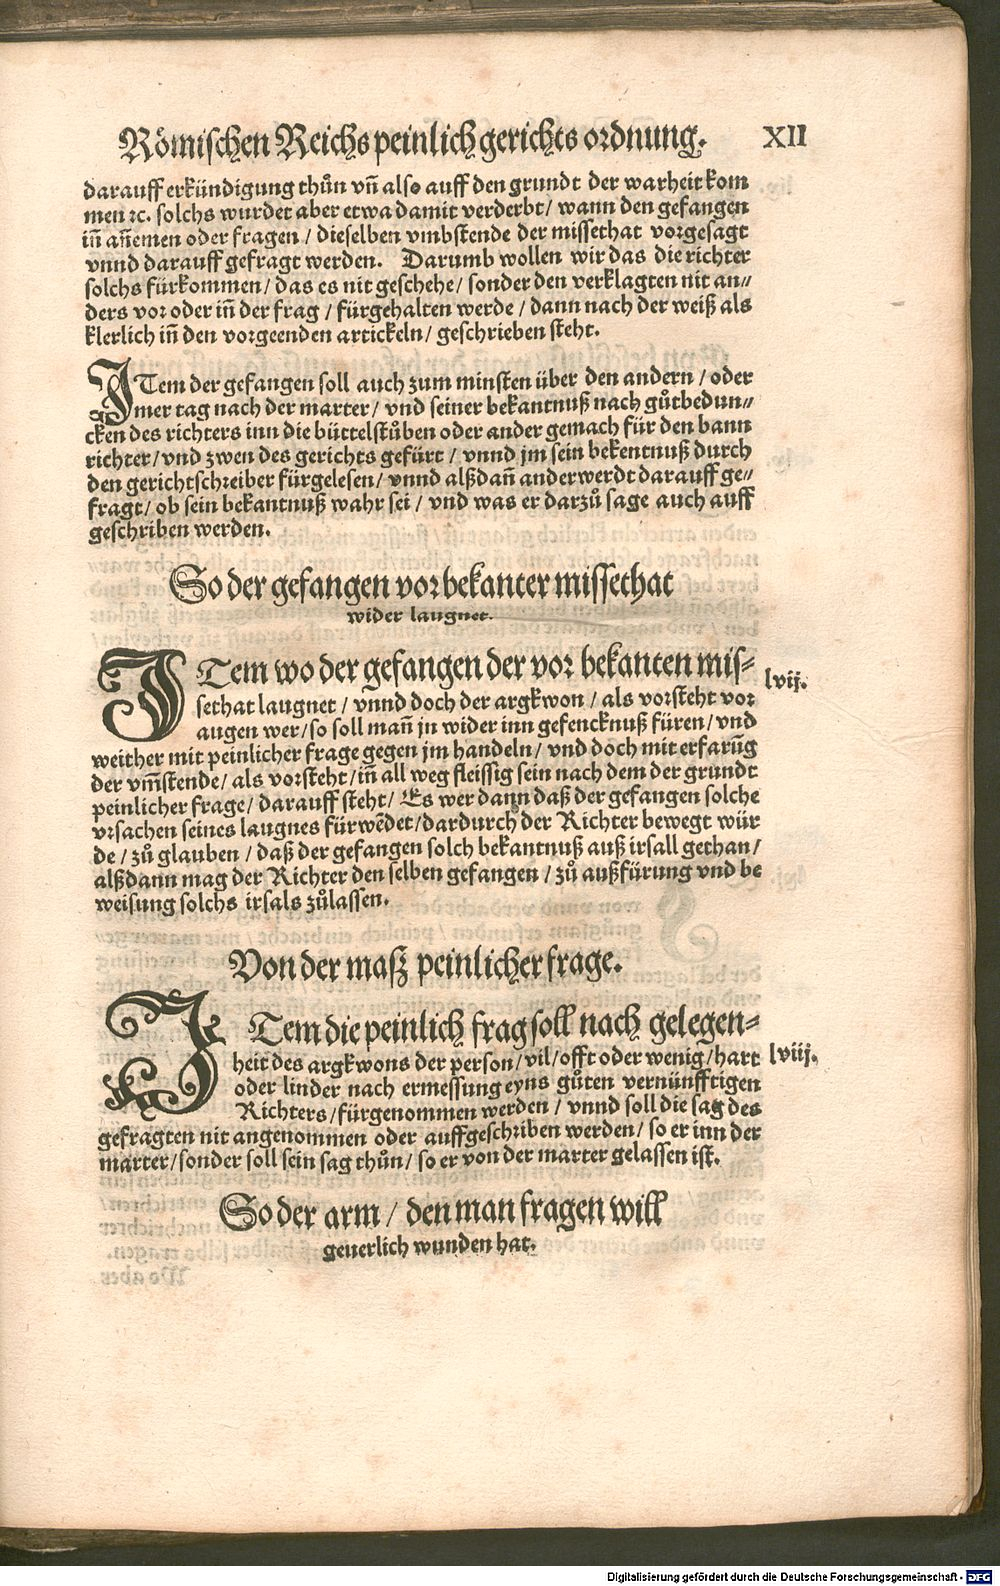 Römischen Reichs peinlich gerichts ordnung. XII
darauff erkündigung thůn vñ also auff den grundt der warheit kom
men ꝛc. solchs wurdet aber etwa damit verderbt / wann den gefangen
iñ añemen oder fragen / dieselben vmbstende der missethat vorgesagt
vnnd darauff gefragt werden. Darumb wollen wir das die richter
solchs fürkommen / das es nit geschehe / sonder den verklagten nit an⸗
ders vor oder iñ der frag / fürgehalten werde / dann nach der weiß als
klerlich iñ den vorgeenden artickeln / geschrieben steht.
ITem der gefangen soll auch zum minsten über den andern / oder
mer tag nach der marter / vnd seiner bekantnuß nach gůtbedun⸗
cken des richters inn die büttelstůben oder ander gemach für den bann
richter / vnd zwen des gerichts gefürt / vnnd jm sein bekentnuß durch
den gerichtschreiber fürgelesen / vnnd alßdañ anderwerdt darauff ge⸗
fragt / ob sein bekantnuß wahr sei / vnd was er darzů sage auch auff
geschriben werden.
So der gefangen vor bekanter missethat
wider laugnet.
ITem wo der gefangen der vor bekanten mis⸗ lvij.
sethat laugnet / vnnd doch der argkwon / als vorsteht vor
augen wer / so soll mañ jn wider inn gefencknuß füren / vnd
weither mit peinlicher frage gegen jm handeln / vnd doch mit erfarūg
der vm̃stende / als vorsteht / iñ all weg fleissig sein nach dem der grundt
peinlicher frage / darauff steht / Es wer dann daß der gefangen solche
vrsachen seines laugnes fürwēdet / dardurch der Richter bewegt wür
de / zů glauben / daß der gefangen solch bekantnuß auß irsall gethan /
alßdann mag der Richter den selben gefangen / zů außfürung vnd be
weisung solchs irsals zůlassen.
Von der masz peinlicher frage.
ITem die peinlich frag soll nach gelegen⸗
heit des argkwons der person / vil / offt oder wenig / hart lviij.
oder linder nach ermessung eyns gůten vernünfftigen
Richters / fürgenommen werden / vnnd soll die sag des
gefragten nit angenommen oder auffgeschriben werden / so er inn der
marter / sonder soll sein sag thůn / so er von der marter gelassen ist.
So der arm / den man fragen will
geuerlich wunden hat.
Digitalisierung gefördert durch die Deutsche Forschungsgemeinschaft - DFG